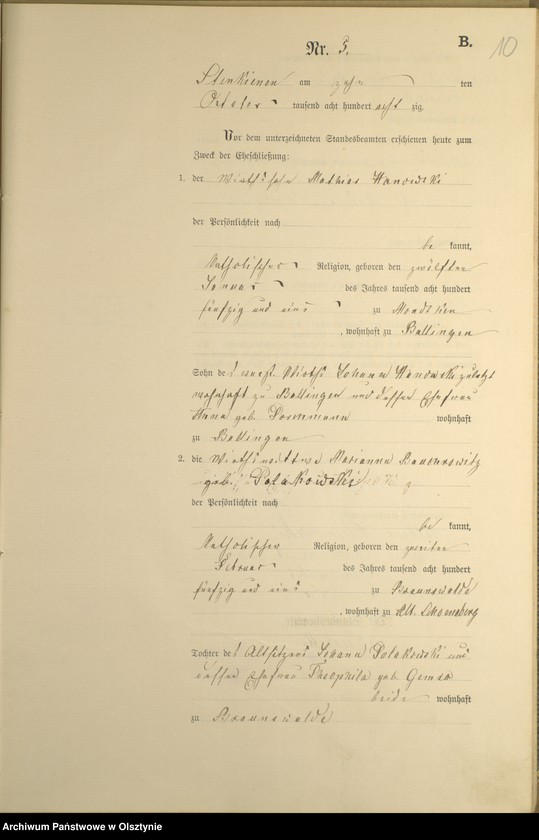 B.
10
Nr. 5.
Stenkienen am zehn ten
October tausend acht hundert acht zig.
Vor dem unterzeichneten Standesbeamten erschienen heute zum
Zweck der Eheschließung:
1. der Wirthssohn Mathias Hanowski
der Persönlichkeit nach
be kannt,
katholischer Religion, geboren den zwölften
Januar des Jahres tausend acht hundert
fünfzig und eins zu
, wohnhaft zu Ballingen
Sohn des Wirths Johann Hanowski zuletzt
wohnhaft zu Ballingen und dessen Ehefrau
Anna geb. wohnhaft
zu Ballingen
2. die Wirthswittwe Marianna
geb. Polakowski
der Persönlichkeit nach
be kannt,
katholischer Religion, geboren den zweiten
Februar des Jahres tausend acht hundert
fünfzig und eins zu Braunswalde
, wohnhaft zu Alt Schoeneberg
Tochter des Altsitzers Johann Polakowski und
dessen Ehefrau Theophila geb.
beide wohnhaft
zu Braunswalde
Archiwum Państwowe w Olsztynie